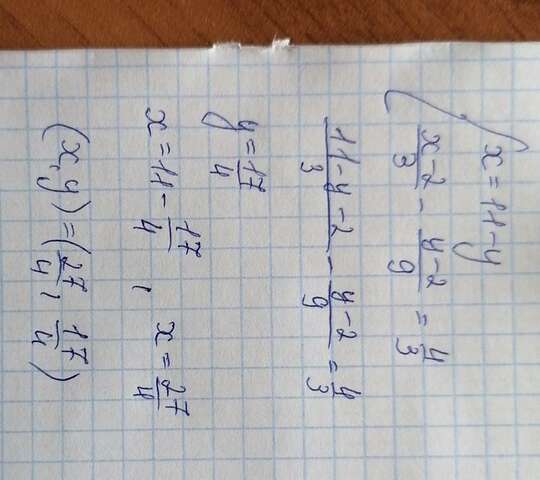 x = 11 - y
x-2/3 - y-2/9 = 4/3
11-y-2/3 - y-2/9 = 4/3
y = 17/4
x = 11 - 17/4 , x = 27/4
(x,y) = (27/4, 17/4)